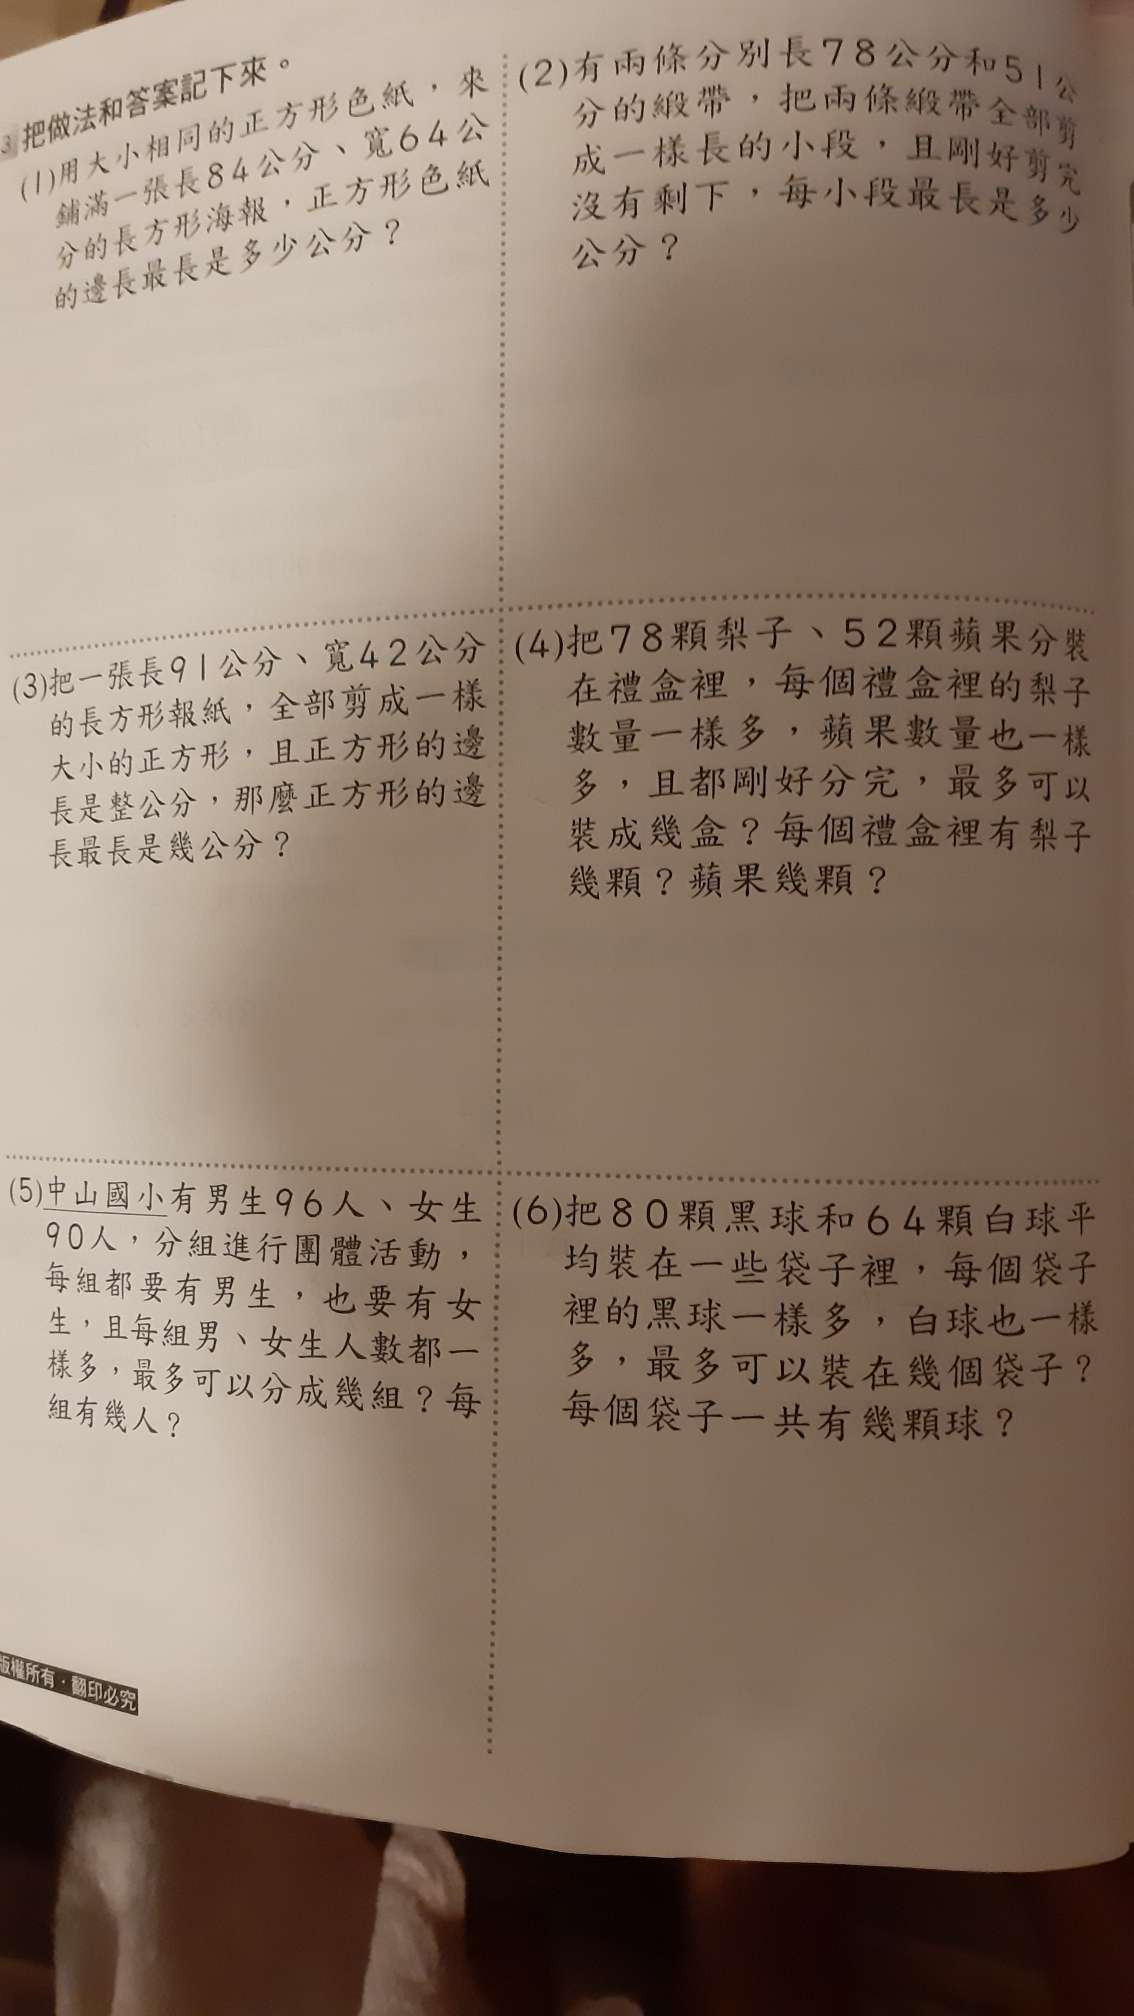 3 把做法和答案記下來。
(1)用大小相同的正方形色紙，來
鋪滿一張長84公分、寬64公
分的長方形海報，正方形色紙
的邊長最長是多少公分？
(2)有兩條分別長78公分和51公
分的緞帶，把兩條緞帶全部剪
成一樣長的小段，且剛好剪完
沒有剩下，每小段最長是多少
公分？
(3)把一張長91公分、寬42公分
的長方形報紙，全部剪成一樣
大小的正方形，且正方形的邊
長是整公分，那麼正方形的邊
長最長是幾公分？
(4)把78顆梨子、52顆蘋果分裝
在禮盒裡，每個禮盒裡的梨子
數量一樣多，蘋果數量也一樣
多，且都剛好分完，最多可以
裝成幾盒？每個禮盒裡有梨子
幾顆？蘋果幾顆？
(5)中山國小有男生96人、女生
90人，分組進行團體活動，
每組都要有男生，也要有女
生，且每組男、女生人數都一
樣多，最多可以分成幾組？每
組有幾人？
(6)把80顆黑球和64顆白球平
均裝在一些袋子裡，每個袋子
裡的黑球一樣多，白球也一樣
多，最多可以裝在幾個袋子？
每個袋子一共有幾顆球？
版權所有·翻印必究